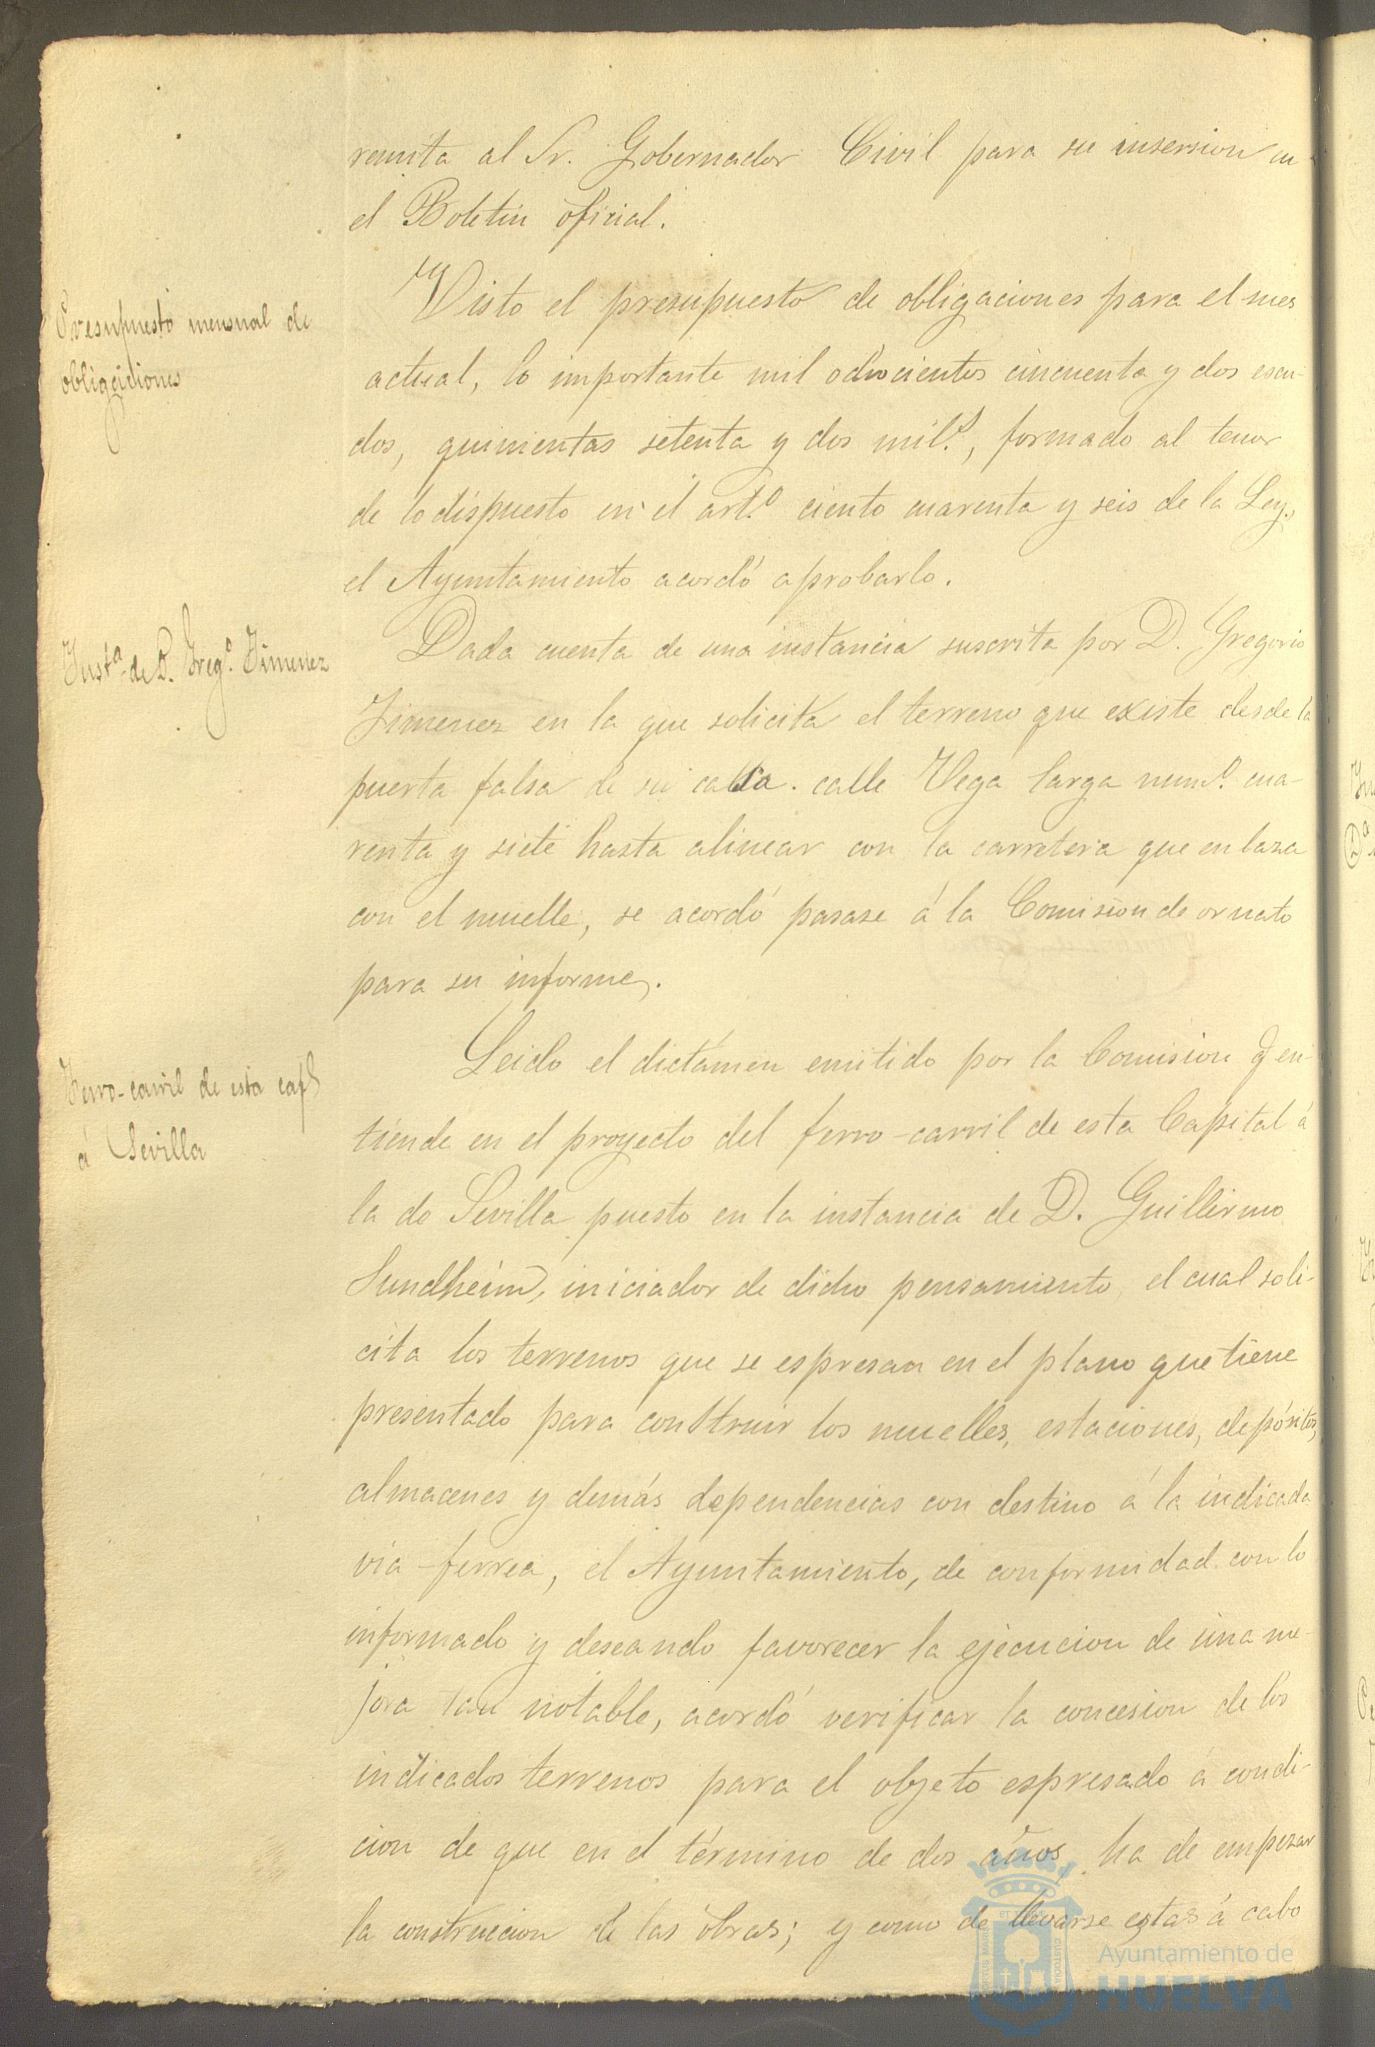 remita al Sr. Gobernador Civil para su insersion en
el Boletin oficial.
Presupuesto mensual de
obligaciones
Visto el presupuesto de obligaciones para el mes
actual, lo importante mil ochocientos cincuenta y dos escu-
dos, quinientas setenta y dos mil.s, formado al tenor
de lo dispuesto en el art.o ciento cuarenta y seis de la Ley,
el Ayuntamiento acordó aprobarlo.
Inst.a de D. Greg.o Jimenez
Dada cuenta de una instancia suscrita por D. Gregorio
Jimenez en la que solicita el terreno que existe desde la
puerta falsa de su casa. calle Vega larga num.o cua-
renta y siete hasta alinear con la carretera que enlaza
con el muelle, se acordó pasase á la Comision de ornato
para su informe.
Ferro-carril de esta cap.l
á Sevilla
Leido el dictámen emitido por la Comision q en-
tiende en el proyecto del ferro-carril de esta Capital á
la de Sevilla puesto en la instancia de D. Guillermo
Sundheim, iniciador de dicho pensamiento, el cual soli-
cita los terrenos que se espresan en el plano que tiene
presentado para construir los muelles, estaciones, depósitos,
almacenes y demás dependencias con destino á la indicada
via-ferrea, el Ayuntamiento, de conformidad con lo
informado y deseando favorecer la ejecucion de una me-
jora tan notable, acordó verificar la concesion de los
indicados terrenos para el objeto espresado á condi-
cion de que en el término de dos años, ha de empezar
la construccion de las obras; y como de llevarse estas á cabo
Ayuntamiento de
HUELVA